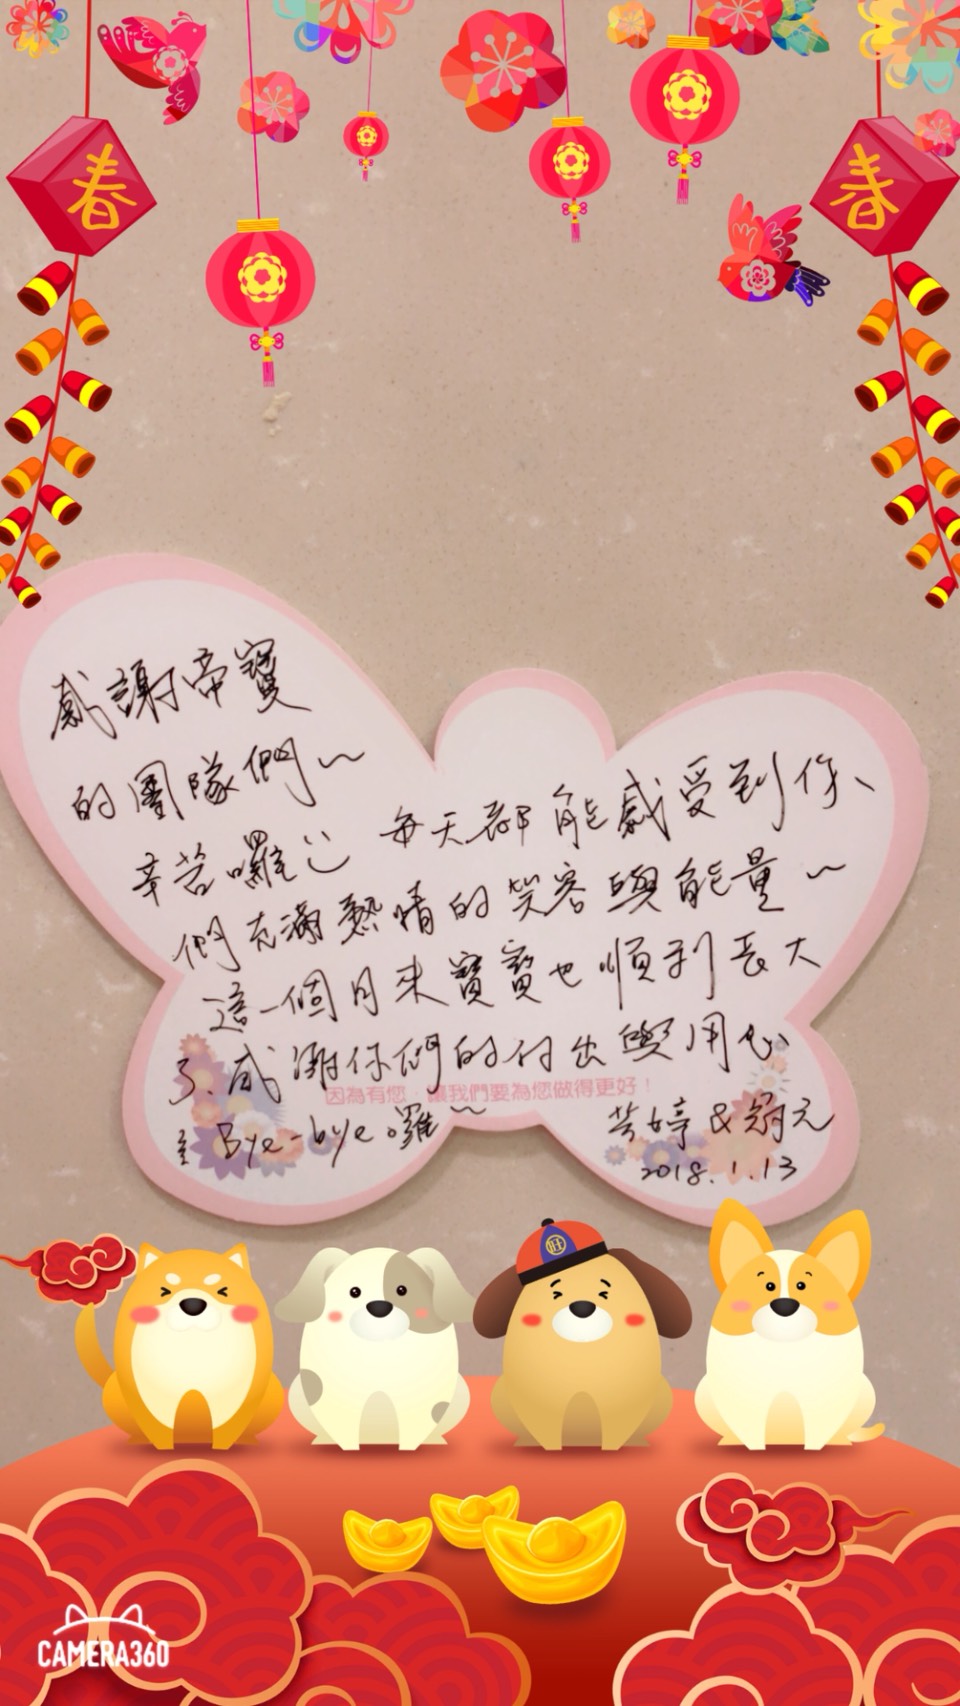 春
春
感謝帝寶
的團隊們~
辛苦囉 每天都能感受到你、
們充滿熱情的笑容與能量~
這一個月來寶寶也順利長大
了.感謝你們的付出與用心
因為有您，讓我們要為您做得更好！
Bye-bye 囉~ 芳婷 & 冠元
2018.1.13
旺
CAMERA360